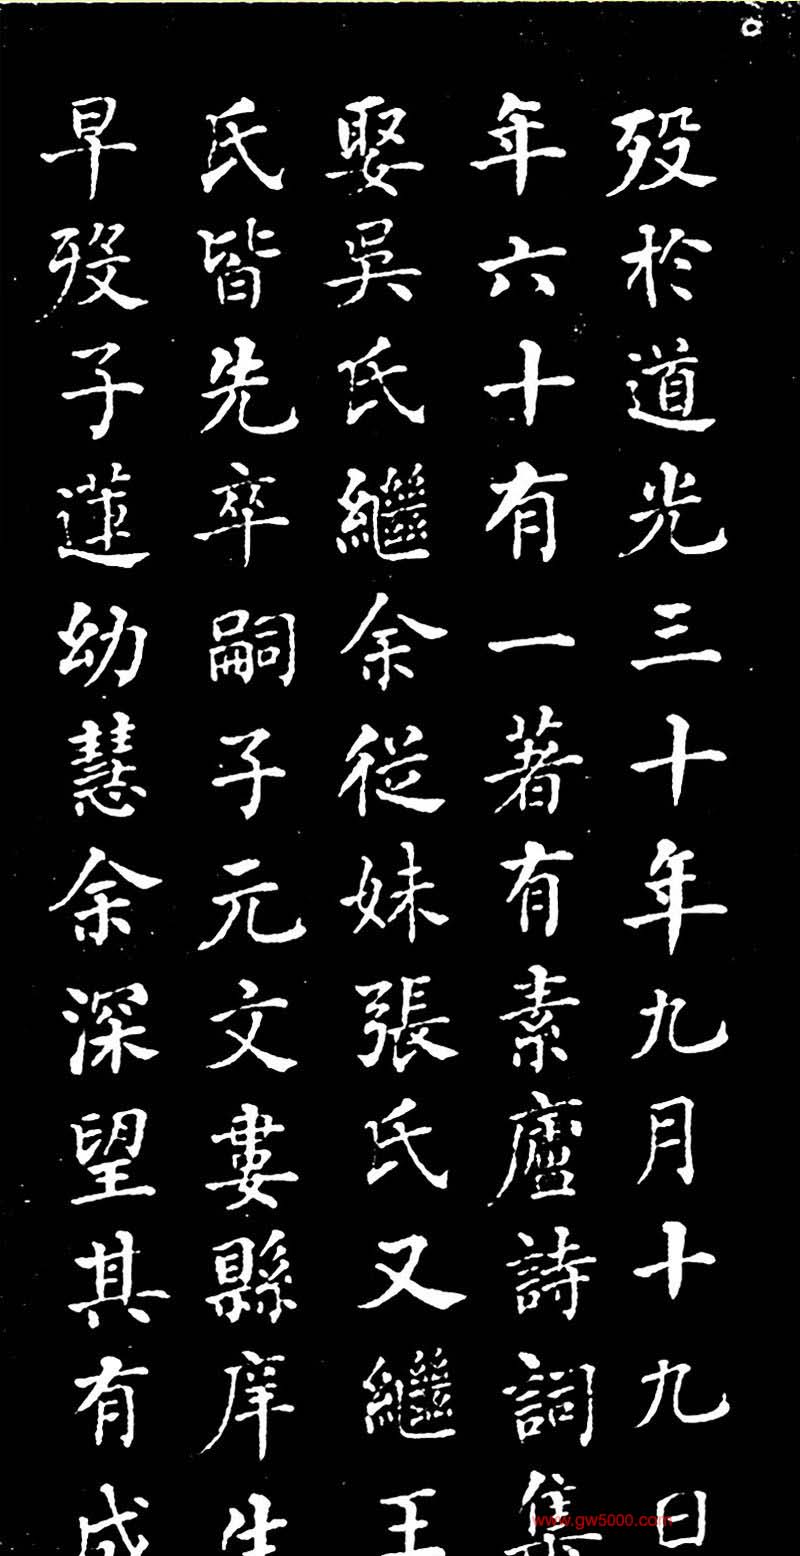 歿於道光三十年九月十九日
年六十有一著有素廬詩詞集
娶吳氏繼余從妹張氏又繼王
氏皆先卒嗣子元文婁縣庠生
早歿子蓮幼慧余深望其有成
www.gw5000.com